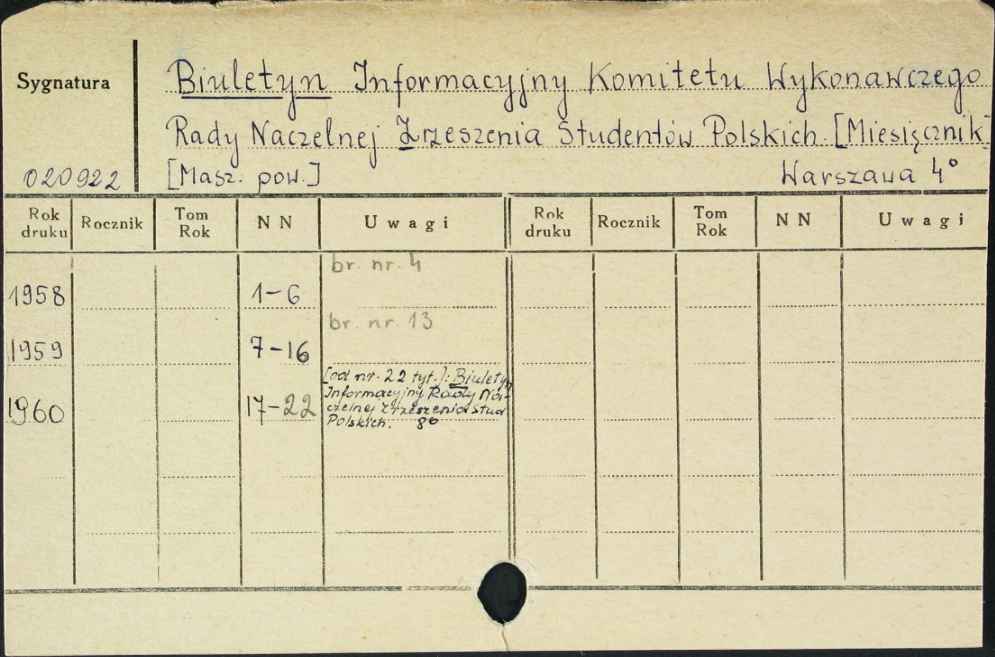 Sygnatura
Biuletyn Informacyjny Komitetu Wykonawczego
Rady Naczelnej Zrzeszenia Studentów Polskich. [Miesięcznik]
020922 [Masz. pow.] Warszawa 4°
Rok druku Rocznik Tom Rok N N Uwagi Rok druku Rocznik Tom Rok N N Uwagi
br. nr. 4
1958 1-6
br. nr. 13
1959 7-16
[od nr. 22 tyt.]: Biuletyn
Informacyjny Rady Na-
1960 17-22 czelnej Zrzeszenia Stud
Polskich. 8°